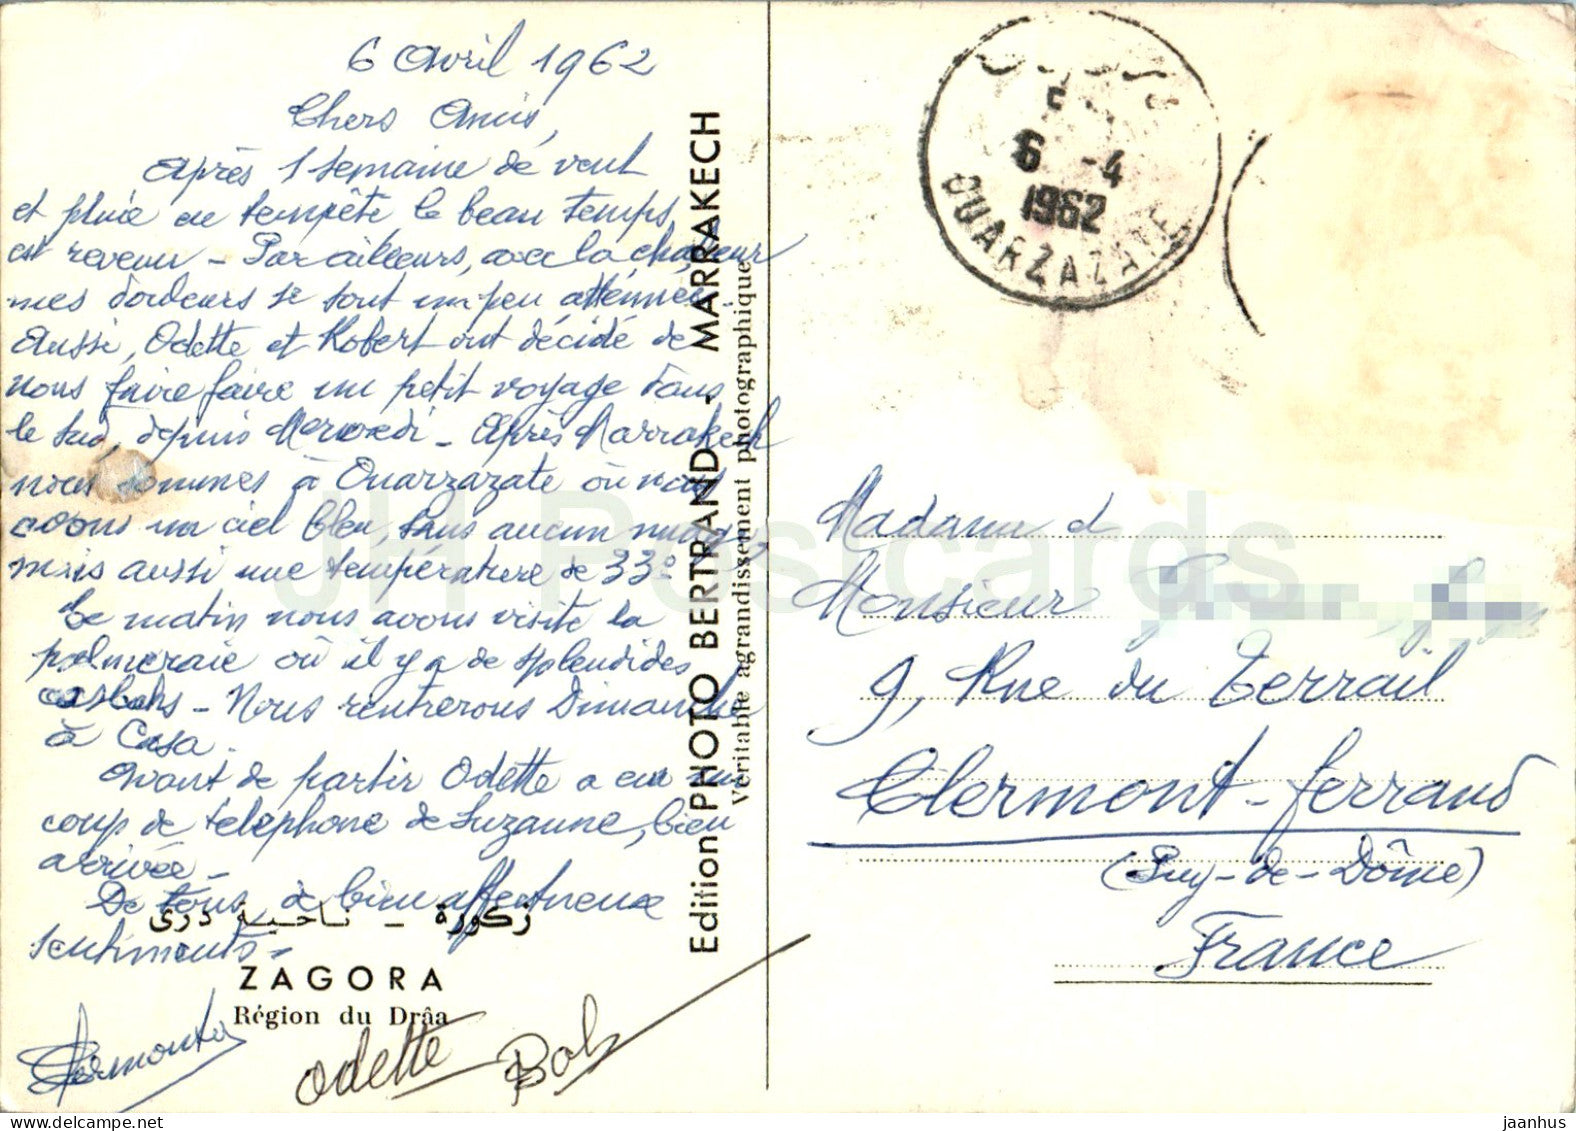 6 Avril 1962
Chers Amis,
Après 1 semaine de vent
et pluie en tempête le beau temps
est revenu - Par ailleurs, avec la chaleur
mes douleurs se sont un peu atténuées
Aussi, Odette et Robert ont décidé de
nous faire faire un petit voyage dans
le Sud, depuis Mercredi - Après Marrakech
nous sommes à Ouarzazate où nous
avons un ciel bleu, sans aucun nuage,
mais aussi une température de 33°
Ce matin nous avons visité la
palmeraie où il y a de splendides
casbahs - Nous rentrerons Dimanche
à Casa.
Avant de partir Odette a eu un
coup de téléphone de Suzanne, bien
arrivée -
De tous, à bien affectueux
sentiments -
زكورة - ناحية درى
ZAGORA
Région du Drâa
Odette
Bob
Edition PHOTO BERTRAND - MARRAKECH
Véritable agrandissement photographique
6 -4
1962
OUARZAZATE
Madame
Monsieur
9, Rue du Terrail
Clermont-ferrand
(Puy-de-Dôme)
France
JH Postcards
jaanhus